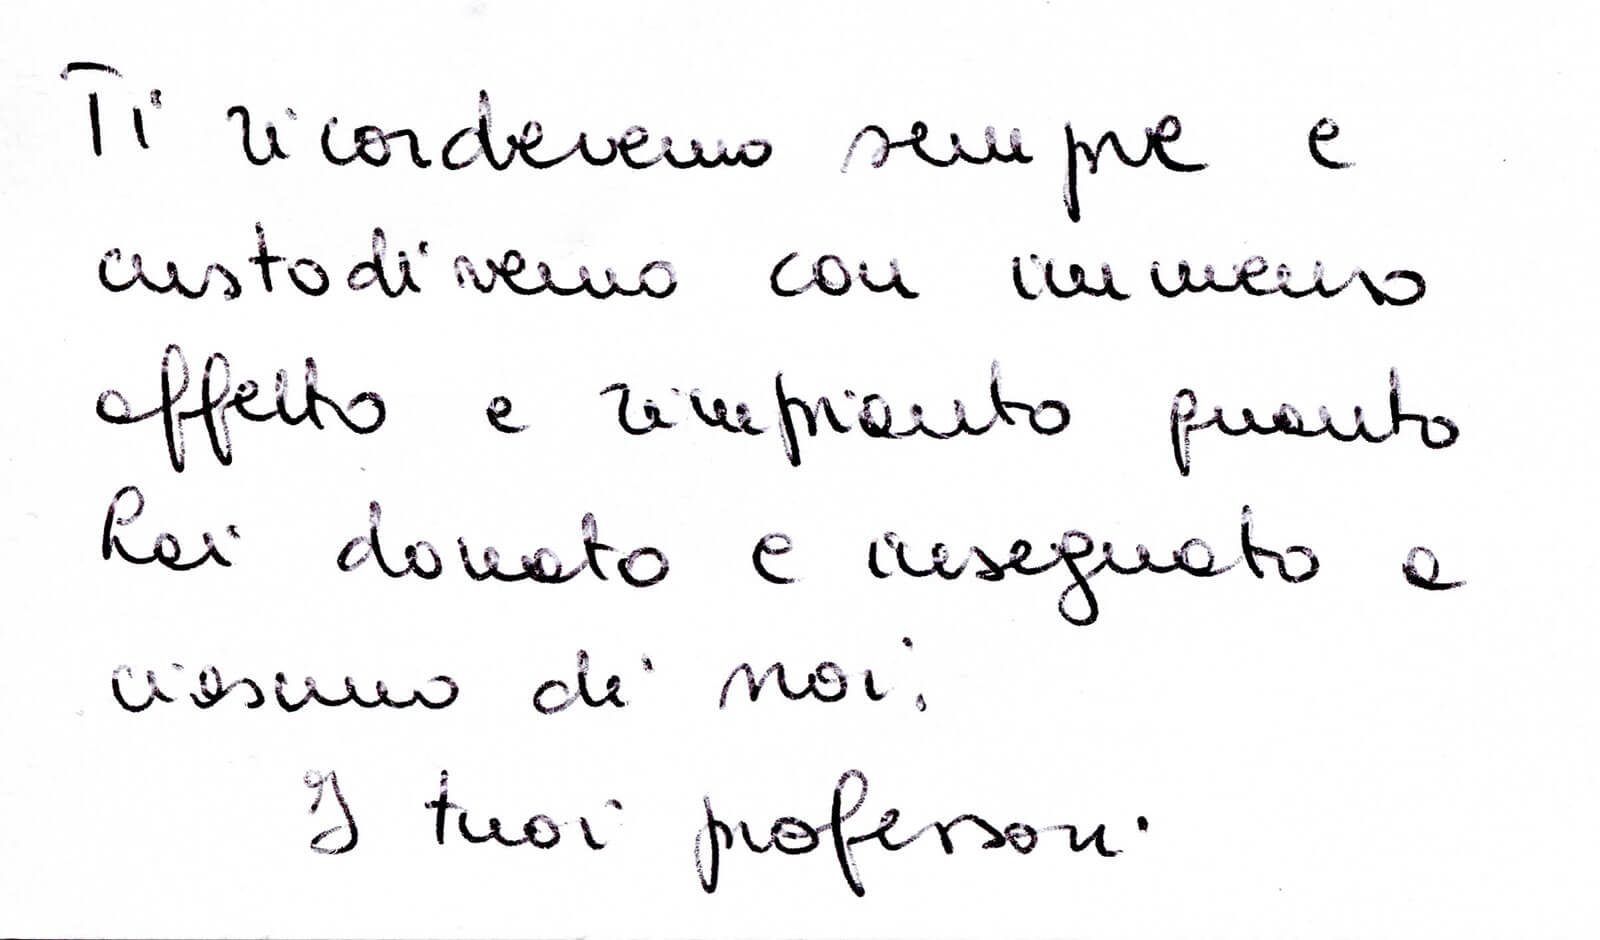 Ti ricorderemo sempre e
custodiremo con immenso
affetto e rimpianto quanto
hai donato e insegnato a
ciascuno di noi.
I tuoi professori